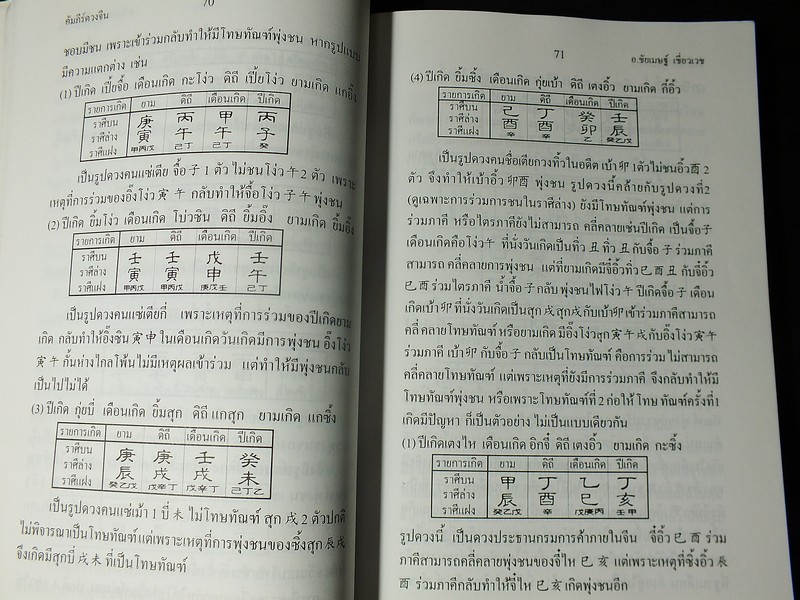 70
คัมภีร์ดวงจีน
ชอบมีชน เพราะเข้าร่วมกลับทำให้มีโทษทัณฑ์พุ่งชน หากรูปแบบ
มีความแตกต่าง เช่น
(1) ปีเกิด เปี้ยจื้อ เดือนเกิด กะโหง่ว ดิถี เปี้ยโหง่ว ยามเกิด แกอิ๊ง
รายการเกิด ยาม ดิถี เดือนเกิด ปีเกิด
ราศีบน 庚 丙 甲 丙
ราศีล่าง 寅 午 午 子
ราศีแฝง 甲丙戊 己丁 己丁 癸
เป็นรูปดวงคนแซ่เตีย จื้อ 子 1 ตัว ไม่ชนโหง่ว 午 2 ตัว เพราะ
เหตุที่การร่วมของอิ๊งโหง่ว 寅 午 กลับทำให้จื้อโหง่ว 子 午 พุ่งชน
(2) ปีเกิด ยิ้มโหง่ว เดือนเกิด โบ่วซิน ดิถี ยิ้มอิ๊ง ยามเกิด ยิ้มอิ๊ง
รายการเกิด ยาม ดิถี เดือนเกิด ปีเกิด
ราศีบน 壬 壬 戊 壬
ราศีล่าง 寅 寅 申 午
ราศีแฝง 甲丙戊 甲丙戊 庚戊壬 己丁
เป็นรูปดวงคนแซ่เตียกี่ เพราะเหตุที่การร่วมของปีเกิดยาม
เกิด กลับทำให้อิ๊งซิน 寅 申 ในเดือนเกิดวันเกิดมีการพุ่งชน อิ๊งโหง่ว
寅 午 กั้นห่างไกลโพ้น ไม่มีเหตุผลเข้าร่วม แต่ทำให้มีพุ่งชนกลับ
เป็นไปไม่ได้
(3) ปีเกิด กุ่ยบี่ เดือนเกิด ยิ้มสุก ดิถี แกสุก ยามเกิด แกซิ้ง
รายการเกิด ยาม ดิถี เดือนเกิด ปีเกิด
ราศีบน 庚 庚 壬 癸
ราศีล่าง 辰 戌 戌 未
ราศีแฝง 癸乙戊 戊辛丁 戊辛丁 己丁乙
เป็นรูปดวงคนแซ่เม้า 1 บี่ 未 ไม่โทษทัณฑ์ สุก 戌 2 ตัวปกติ
ไม่พิจารณาเป็นโทษทัณฑ์ แต่เพราะเหตุที่การพุ่งชนของซิ้งสุก 辰 戌
จึงเกิดมีสุกบี่ 戌 未 ที่เป็นโทษทัณฑ์
71
อ.ชัยเมษฐ์ เชี่ยวเวช
(4) ปีเกิด ยิ้มซิ้ง เดือนเกิด กุ่ยเบ้า ดิถี เตงอิ้ว ยามเกิด กี้อิ้ว
รายการเกิด ยาม ดิถี เดือนเกิด ปีเกิด
ราศีบน 己 丁 癸 壬
ราศีล่าง 酉 酉 卯 辰
ราศีแฝง 辛 辛 乙 癸乙戊
เป็นรูปดวงคนชื่อเตียกวงทิ้วในอดีต เบ้า 卯 1 ตัวไม่ชนอิ้ว 酉 2
ตัว จึงทำให้เบ้าอิ้ว 卯酉 พุ่งชน รูปดวงนี้คล้ายกับรูปดวงที่2
(ดูเฉพาะการร่วมการชนในราศีล่าง) ยังมีโทษทัณฑ์พุ่งชน แต่การ
ร่วมภาคี หรือไตรภาคียังไม่สามารถ คลี่คลายเช่นปีเกิด เป็นจื้อ 子
เดือนเกิดคือโหง่ว 午 ที่นั่งวันเกิดเป็นทิ่ว 丑 ทิ่ว 丑 กับจื้อ 子 ร่วมภาคี
สามารถ คลี่คลายการพุ่งชน แต่ที่ยามเกิดมีจี๋อิ้วทิ่ว 巳 酉 丑 กับจี๋อิ้ว
巳 酉 ร่วมไตรภาคี น้ำจื้อ 子 กลับ พุ่งชนไฟโหง่ว 午 ปีเกิดจื้อ 子 เดือน
เกิดเบ้า 卯 ที่นั่งวันเกิดเป็นสุก 戌 สุก 戌 กับเบ้า 卯 เข้าร่วมภาคีสามารถ
คลี่ คลายโทษทัณฑ์ หรือยามเกิด มีอิ๊งโหง่วสุก 寅 午 戌 กับอิ๊งโหง่ว 寅 午
ร่วมภาคี เบ้า 卯 กับจื้อ 子 กลับเป็นโทษทัณฑ์ คือการร่วม ไม่สามารถ
คลี่คลายโทษทัณฑ์ แต่เพราะเหตุที่ยังมีการร่วมภาคี จึงกลับทำให้มี
โทษทัณฑ์พุ่งชน หรือเพราะโทษทัณฑ์ที่ 2 ก่อให้ โทษทัณฑ์ครั้งที่1
เกิดมีปัญหา ก็เป็นตัวอย่าง ไม่เป็นแบบเดียวกัน
(1) ปีเกิดเตงไห เดือนเกิด อิกจี๋ ดิถี เตงอิ้ว ยามเกิด กะซิ้ง
รายการเกิด ยาม ดิถี เดือนเกิด ปีเกิด
ราศีบน 甲 丁 乙 丁
ราศีล่าง 辰 酉 巳 亥
ราศีแฝง 癸乙戊 辛 戊庚丙 壬甲
รูปดวงนี้ เป็นดวงประธานกรมการค้าภายในจีน จี๋อิ้ว 巳 酉 ร่วม
ภาคีสามารถคลี่คลายพุ่งชนของจี๋ไห 巳 亥 แต่เพราะเหตุที่ซิ้งอิ้ว 辰
酉 ร่วมภาคีกลับทำให้จี๋ไห 巳 亥 เกิดพุ่งชนอีก